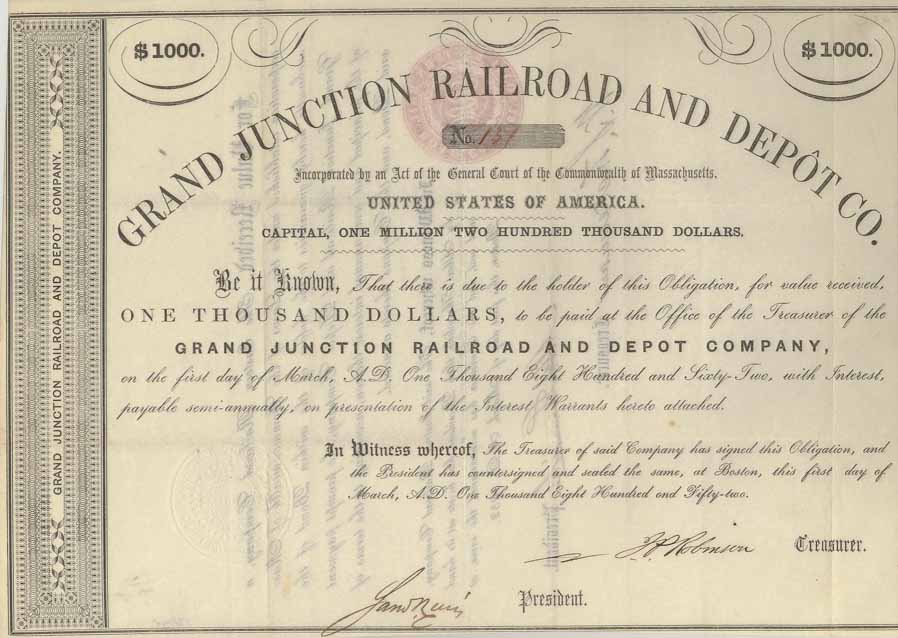 $1000.
$1000.
GRAND JUNCTION RAILROAD AND DEPÔT CO.
No. 157
Incorporated by an Act of the General Court of the Commonwealth of Massachusetts.
UNITED STATES OF AMERICA.
CAPITAL, ONE MILLION TWO HUNDRED THOUSAND DOLLARS.
Be it Known, That there is due to the holder of this Obligation, for value received,
ONE THOUSAND DOLLARS, to be paid at the Office of the Treasurer of the
GRAND JUNCTION RAILROAD AND DEPOT COMPANY,
on the first day of March, A.D. One Thousand Eight Hundred and Sixty-Two, with Interest,
payable semi-annually, on presentation of the Interest Warrants hereto attached.
In Witness whereof, The Treasurer of said Company has signed this Obligation, and
the President has countersigned and sealed the same, at Boston, this first day of
March, A.D. One Thousand Eight Hundred and Fifty-two.
Robinson Treasurer.
President.
GRAND JUNCTION RAILROAD AND DEPOT COMPANY.